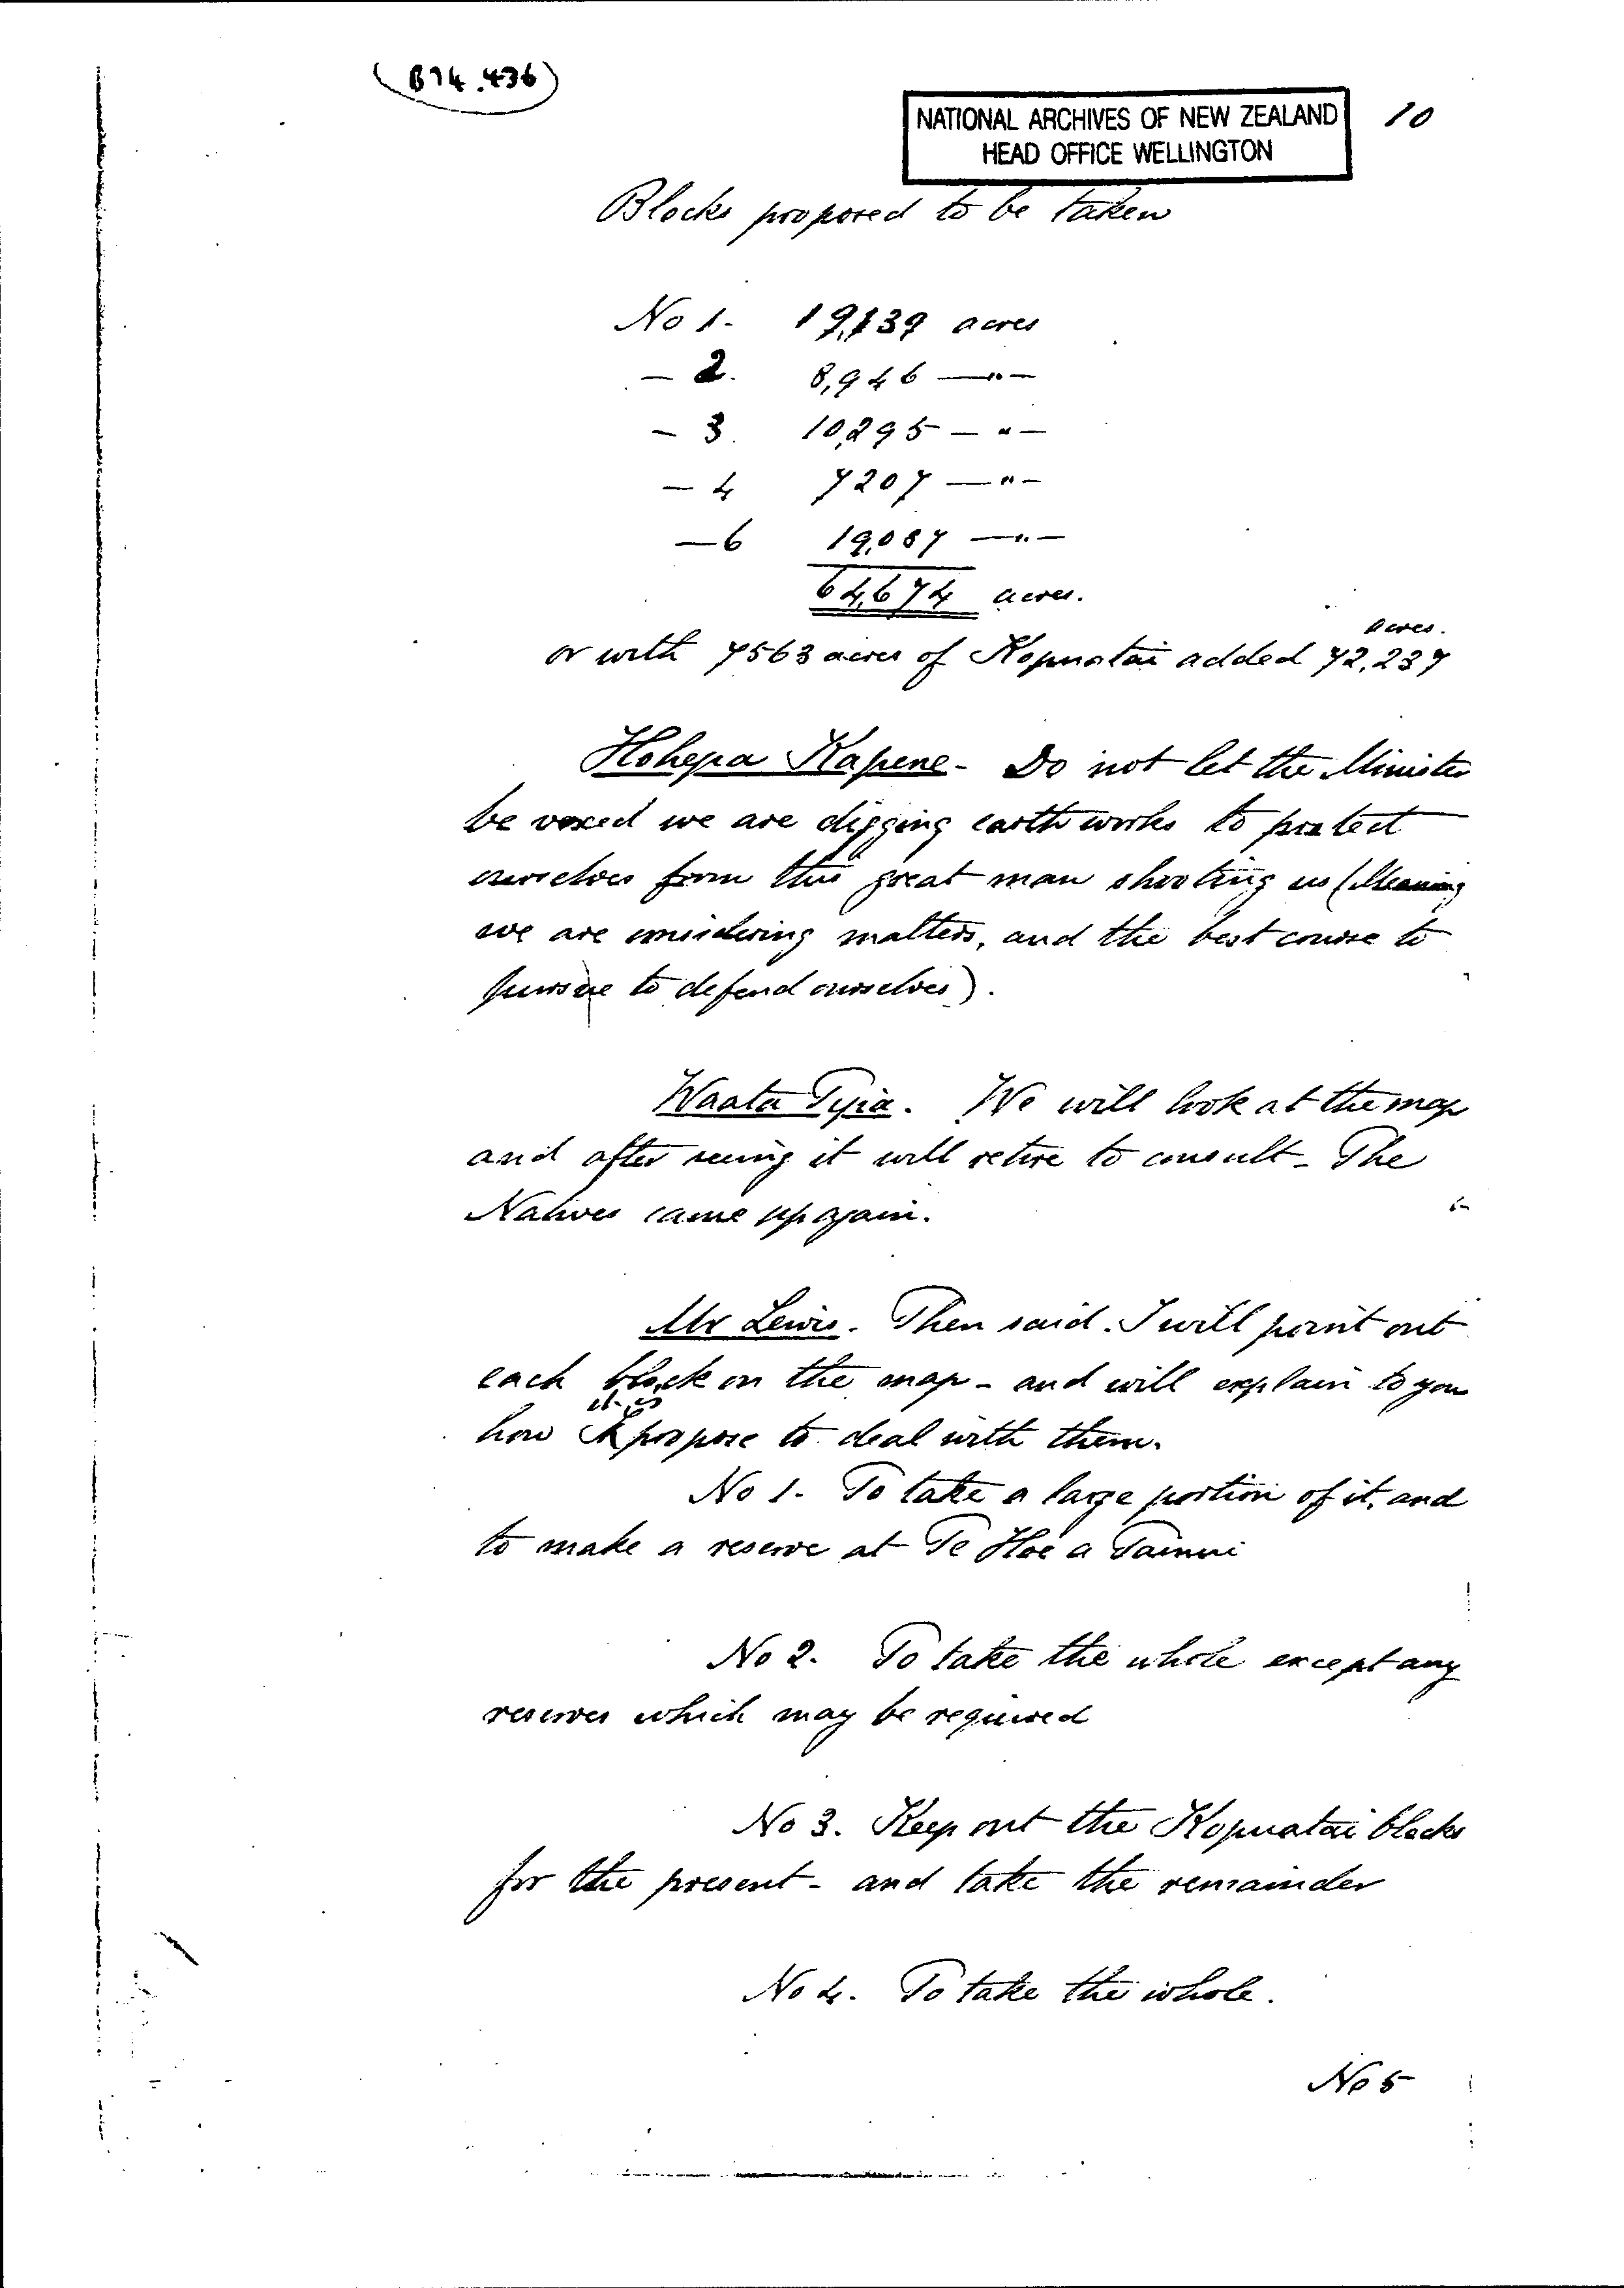 (B74.436)
NATIONAL ARCHIVES OF NEW ZEALAND
HEAD OFFICE WELLINGTON
10
Blocks proposed to be taken
No 1. 19,139 acres
— 2. 8,946 — " —
— 3. 10,295 — " —
— 4 7207 — " —
— 6 19,087 — " —
64,674 acres.
acres.
or with 7563 acres of Kopuatai added 72,237
Hohepa Kapene - Do not let the Minister
be vexed we are digging earthworks to protect
ourselves from this great man shooting us (Meaning
we are considering matters, and the best course to
pursue to defend ourselves).
Waata Tipia. We will look at the map
and after seeing it will retire to consult - The
Natives came up again.
Mr Lewis. Then said. I will point out
each block on the map - and will explain to you
it is
how I propose to deal with them.
No 1. To take a large portion of it, and
to make a reserve at Te Hoe a Tainui
No 2. To take the whole except any
reserves which may be required
No 3. Keep out the Kopuatai blocks
for the present - and take the remainder
No 4. To take the whole.
No 5